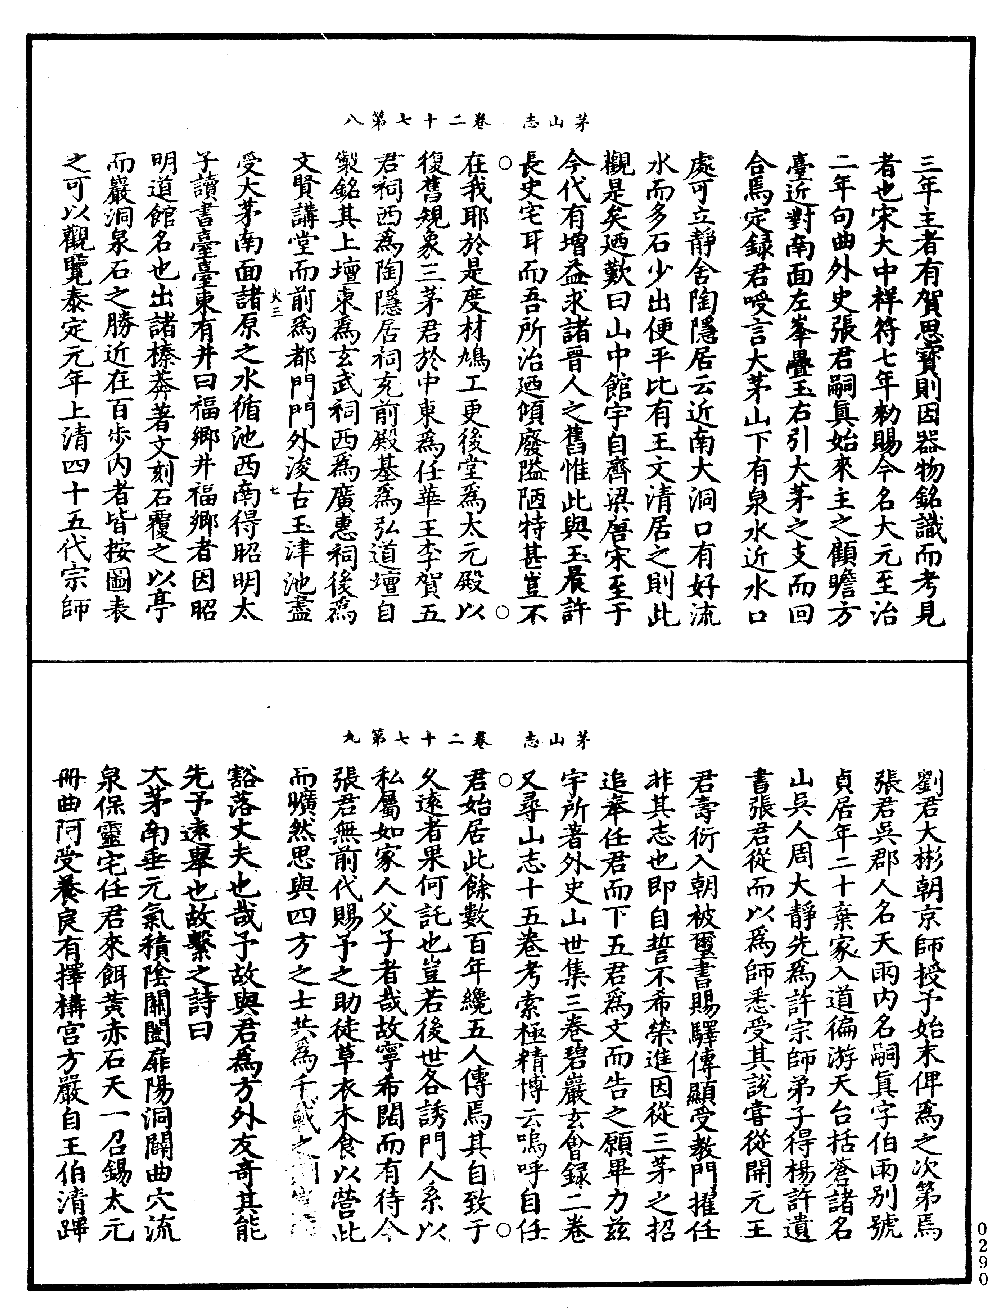 茅山志　卷二十七第八
三年主者有賀思寶則因器物銘識而考見
者也宋大中祥符七年勑賜今名大元至治
二年句曲外史張君嗣真始來主之顧瞻方
臺近對南面左峯疊玉右引大茅之支而回
合焉定録君受言大茅山下有泉水近水口
處可立静舍陶隱居云近南大洞口有好流
水而多石少出便平比有王文清居之則此
觀是矣廼歎曰山中館宇自齊梁唐宋至于
今代有增益求諸晉人之舊惟此與玉晨許
長史宅耳而吾所治廼傾廢隘陋特甚豈不
在我耶於是度材鳩工更後堂爲太元殿以
復舊規象三茅君於中東爲任華王李賀五
君祠西爲陶隱居祠充前殿基爲弘道壇自
製銘其上壇東爲玄武祠西爲廣惠祠後爲
文賢講堂而前爲都門門外浚古玉津池盡
火三　七
受大茅南面諸原之水循池西南得昭明太
子讀書臺臺東有井曰福鄉井福鄉者因昭
明道館名也出諸榛莽著文刻石覆之以亭
而巖洞泉石之勝近在百步内者皆按圖表
之可以觀覽泰定元年上清四十五代宗師
茅山志　卷二十七第九
劉君大彬朝京師授予始末俾爲之次第焉
張君吴郡人名天雨内名嗣真字伯雨别號
貞居年二十棄家入道徧游天台括蒼諸名
山吴人周大静先爲許宗師弟子得楊許遺
書張君從而以爲師悉受其說嘗從開元王
君壽衍入朝被璽書賜驛傳顯受教門擢任
非其志也即自誓不希榮進因從三茅之招
追奉任君而下五君爲文而告之願畢力兹
宇所著外史山世集三卷碧巖玄會録二卷
又尋山志十五卷考索極精博云嗚呼自任
君始居此餘數百年纔五人傳焉其自致于
久遠者果何託也豈若後世各誘門人系以
私屬如家人父子者哉故寧希闊而有待今
張君無前代賜予之助徒草衣木食以營此
而曠然思與四方之士共爲千載之
豁落丈夫也哉予故與君爲方外友奇其能
先予遠舉也故繫之詩曰
大茅南垂元氣積陰關闔扉陽洞闢曲穴流
泉保靈宅任君來餌黄赤石天一召錫太元
册曲阿受養良有擇構宫方嚴自王伯清蹕
0290